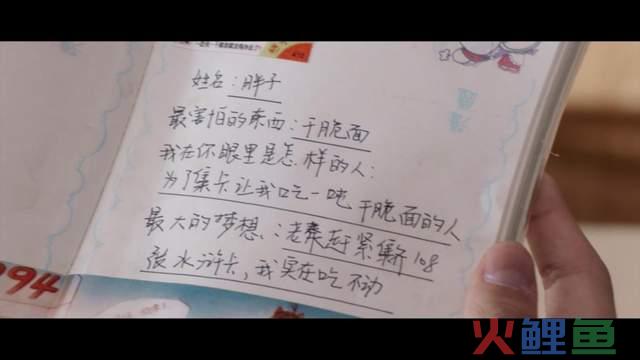 姓名:胖子
最害怕的东西:干脆面
我在你眼里是怎样的人:
为了集卡让我吃一吨干脆面的人
最大的梦想:老秦赶紧集齐108
张水浒卡,我实在吃不动
994
火鲤鱼